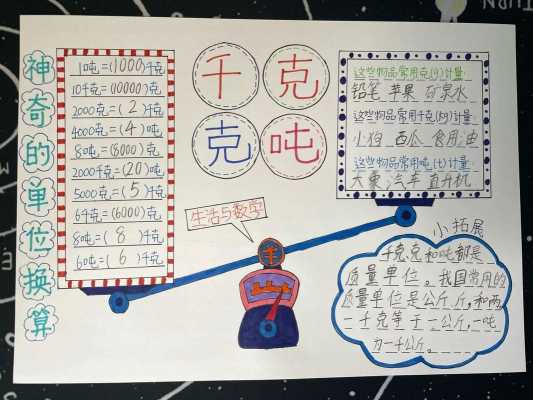 神奇的单位换算
1吨=(1000)千克
10千克=(10000)克
2000克=(2)千克
4000克=(4)吨
8吨=(8000)克
2000千克=(20)吨
5000克=(5)千克
6千克=(6000)克
8吨=(8)千克
6吨=(6)千克
千克
克吨
生活与数学
千
这些物品常用克(g)计量
铅笔 苹果 矿泉水
这些物品常用千克(kg)计量
小狗 西瓜 食用油
这些物品常用吨(t)计量
大象 汽车 直升机
小拓展
千克、克和吨都是
质量单位。我国常用的
质量单位是公斤,斤,和两
一千克等于一公斤,一吨
为一千公斤。